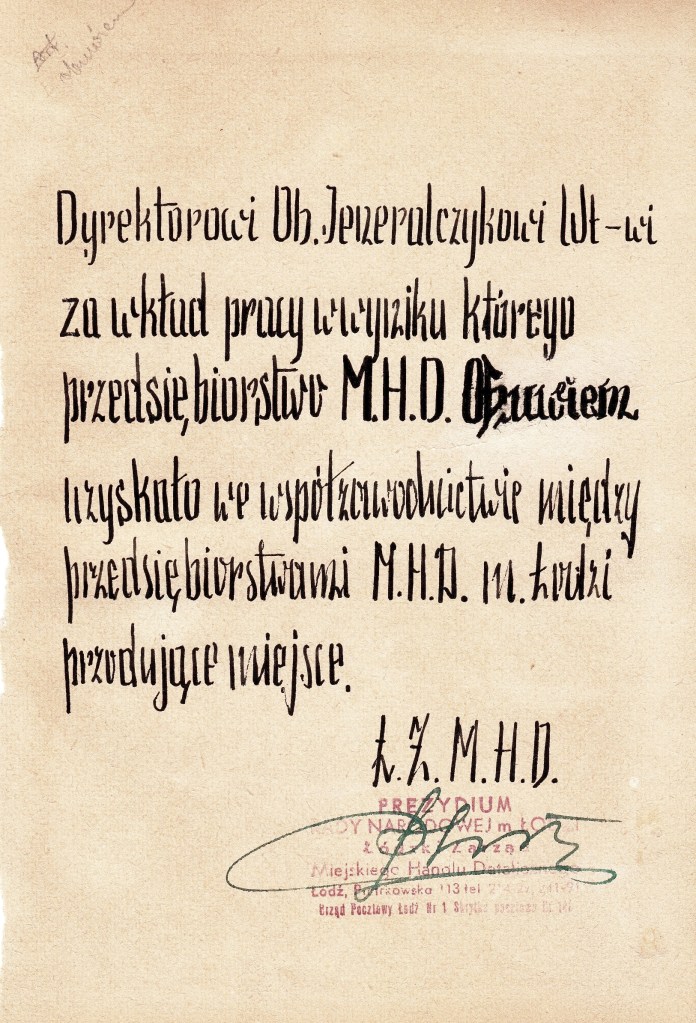 Dyrektorowi Ob. Jeneralczykowi Wł-wi
za wkład pracy w wyniku którego
przedsiębiorstwo M.H.D. Obuwiem
uzyskało we współzawodnictwie między
przedsiębiorstwami M.H.D. m. Łodzi
przodujące miejsce.
Ł.Z. M.H.D.
PREZYDIUM
RADY NARODOWEJ m ŁODZI
Łódzki Zarząd
Miejskiego Handlu Detalicznego
Łódź, Piotrkowska 113 tel
Urząd Pocztowy Łódź Nr 1 Skrytka pocztowa